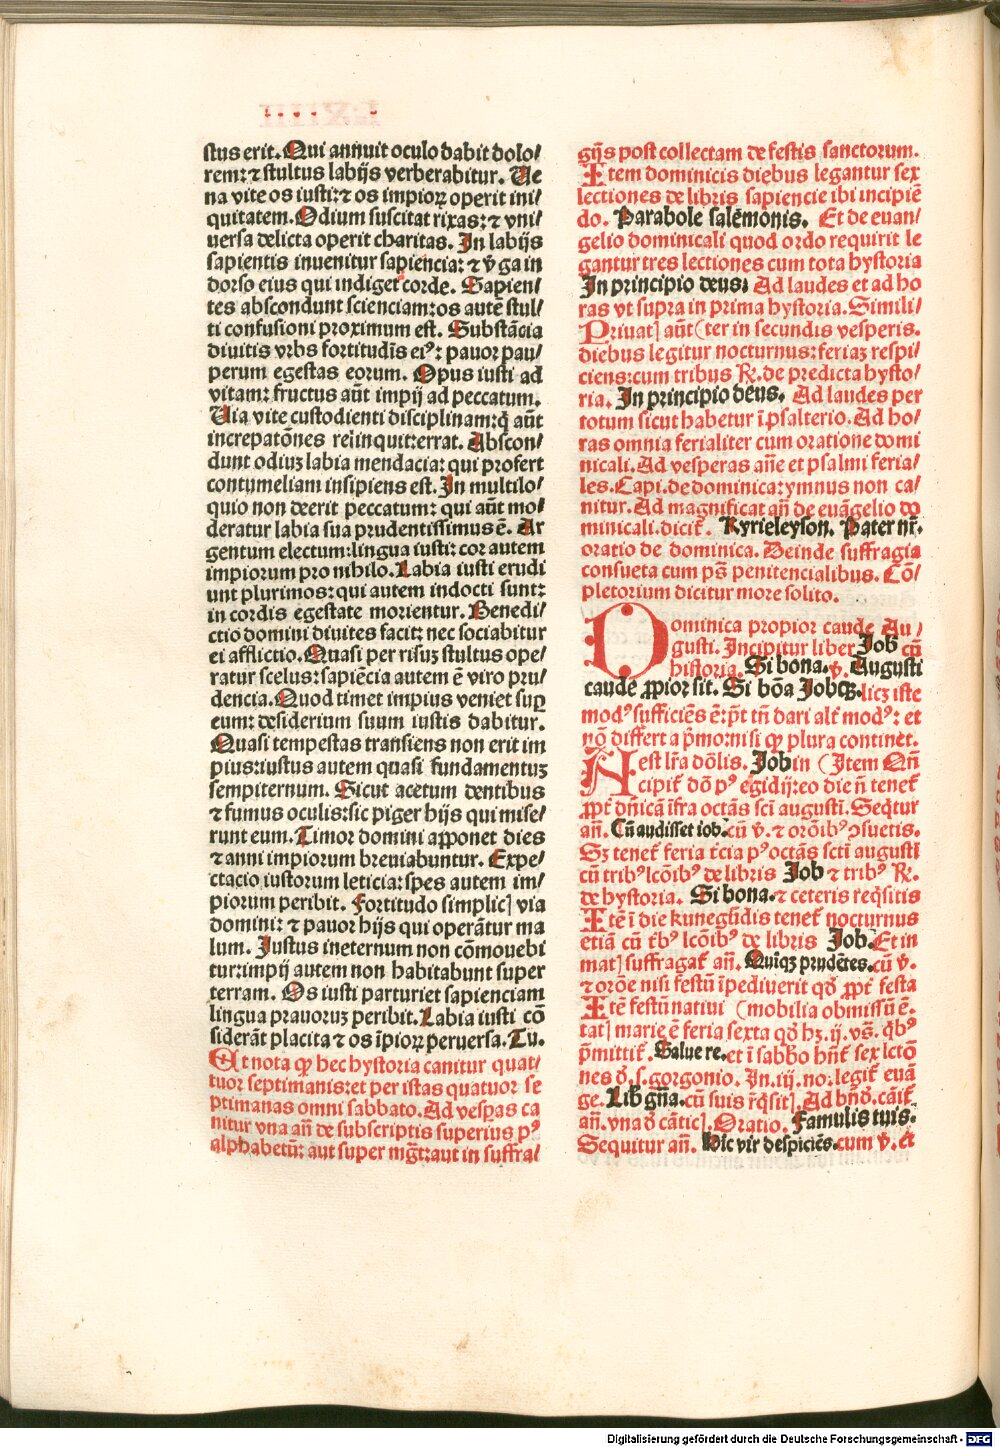 stus erit. Qui annuit oculo dabit dolo/
rem: ⁊ stultus labijs verberabitur. Ue
na vite os iusti: ⁊ os impioꝝ operit ini/
quitatem. Odium suscitat rixas: ⁊ vni/
uersa delicta operit charitas. In labijs
sapientis inuenitur sapiencia: ⁊ v̾ga in
dorso eius qui indiget corde. Sapien/
tes abscondunt scienciam: os autē stul/
ti confusioni proximum est. Substācia
diuitis vrbs fortitudīs eiꝰ: pauor pau/
perum egestas eorum. Opus iusti ad
vitam: fructus aūt impij ad peccatum.
Uia vite custodienti disciplinam: q̄ aūt
increpatōnes relinquit: errat. Abscon/
dunt odiuꝫ labia mendacia: qui profert
contumeliam insipiens est. In multilo/
quio non deerit peccatum: qui aūt mo/
deratur labia sua prudentissimus ē. Ar
gentum electum: lingua iusti: cor autem
impiorum pro nihilo. Labia iusti erudi
unt plurimos: qui autem indocti sunt:
in cordis egestate morientur. Benedi/
ctio domini diuites facit: nec sociabitur
ei afflictio. Quasi per risuꝫ stultus ope/
ratur scelus: sapiēcia autem ē viro pru/
dencia. Quod timet impius veniet suꝑ
eum: desiderium suum iustis dabitur.
Quasi tempestas transiens non erit im
pius: iustus autem quasi fundamentuꝫ
sempiternum. Sicut acetum dentibus
⁊ fumus oculis: sic piger hijs qui mise/
runt eum. Timor domini apponet dies
⁊ anni impiorum breuiabuntur. Expe/
ctacio iustorum leticia: spes autem im/
piorum peribit. Fortitudo simplicꝭ via
domini: ⁊ pauor hijs qui operātur ma
lum. Justus ineternum non cōmouebi
tur: impij autem non habitabunt super
terram. Os iusti parturiet sapienciam
lingua prauoruꝫ peribit. Labia iusti cō
siderāt placita ⁊ os īpioꝝ peruersa. Tu.
Et nota qꝙ hec hystoria canitur quat/
tuor septimanis: et per istas quatuor se
ptimanas omni sabbato. Ad vesꝑas ca
nitur vna añ de subscriptis superius pꝰ
alphabetū: aut super mg̅t: aut in suffra/
gijs post collectam de festis sanctorum.
Item dominicis diebus legantur sex
lectiones de libris sapiencie ibi incipiē
do. Parabole salēmonis. Et de euan/
gelio dominicali quod ordo requirit le
gantur tres lectiones cum tota hystoria
In principio deus: Ad laudes et ad ho
ras vt supra in prima hystoria. Simili/
Priuatꝭ aūt (ter in secundis vesperis.
diebus legitur nocturnus: feriaꝫ respi/
ciens: cum tribus ℟. de predicta hysto/
ria. In principio deus. Ad laudes per
totum sicut habetur ī psalterio. Ad ho/
ras omnia ferialiter cum oratione domi
nicali. Ad vesperas añe et psalmi feria/
les. Capi. de dominica: ymnus non ca/
nitur. Ad magnificat añ de euāgelio do
minicali. dicit̄. Kyrieleyson. Pater nr̄.
oratio de dominica. Deinde suffragia
consueta cum ps̄ penitencialibus. Cō/
pletorium dicitur more solito.
Dominica propior caude Au/
gusti. Incipitur liber Job cū
historia. Si bona. ℣. Augusti
caude ꝓpior sit. Si bōa Job qꝫ. licꝫ iste
modꝰ sufficiēs ē: pt̄ tñ dari alt̄ modꝰ: et
nō differt a pͥmo: nisi qꝙ plura continet.
Nest lr̄a dōlis. Job in (Item Qñ
cipit̄ dō pꝰ egidij: eo die ñ tenet̄
ꝓpt̄ dñicā ifra octās scī augusti. Seq̄tur
añ. Cū audisset iob. cū ℣. ⁊ orōibꝰ ↄsuetis.
Sꝫ tenet̄ feria t̄cia pꝰ octās scti augusti
cū tribꝰ lcōibꝰ de libris Job ⁊ tribꝰ ℟.
de hystoria. Si bona. ⁊ ceteris req̄sitis
Itē ī die kunegūdis tenet̄ nocturnus
etiā cū t̄bꝰ lcōibꝰ de libris Job. Et in
matꝭ suffragat̄ añ. Quīqꝫ prudētes. cū ℣.
⁊ orōe nisi festū īpediuerit qd̄ ꝓpt̄ festa
Itē festū natiui (mobilia obmissū ē.
tatꝭ marie ē feria sexta qd̄ hꝫ. ij. vs̄. qͥbꝰ
pͥmittit̄. Salue re. et ī sabbo hñt̄ sex lctō
nes d̄. s. gorgonio. In. iij. no. legit̄ euā
ge. Lib̄ gña. cū suis rq̄sitꝭ. Ad bñd̄. cāit̄
añ. vna d̄ cāticꝭ. Oratio. Famulis tuis.
Sequitur añ. Hic vir despiciēs. cum ℣. et
Digitalisierung gefördert durch die Deutsche Forschungsgemeinschaft - DFG